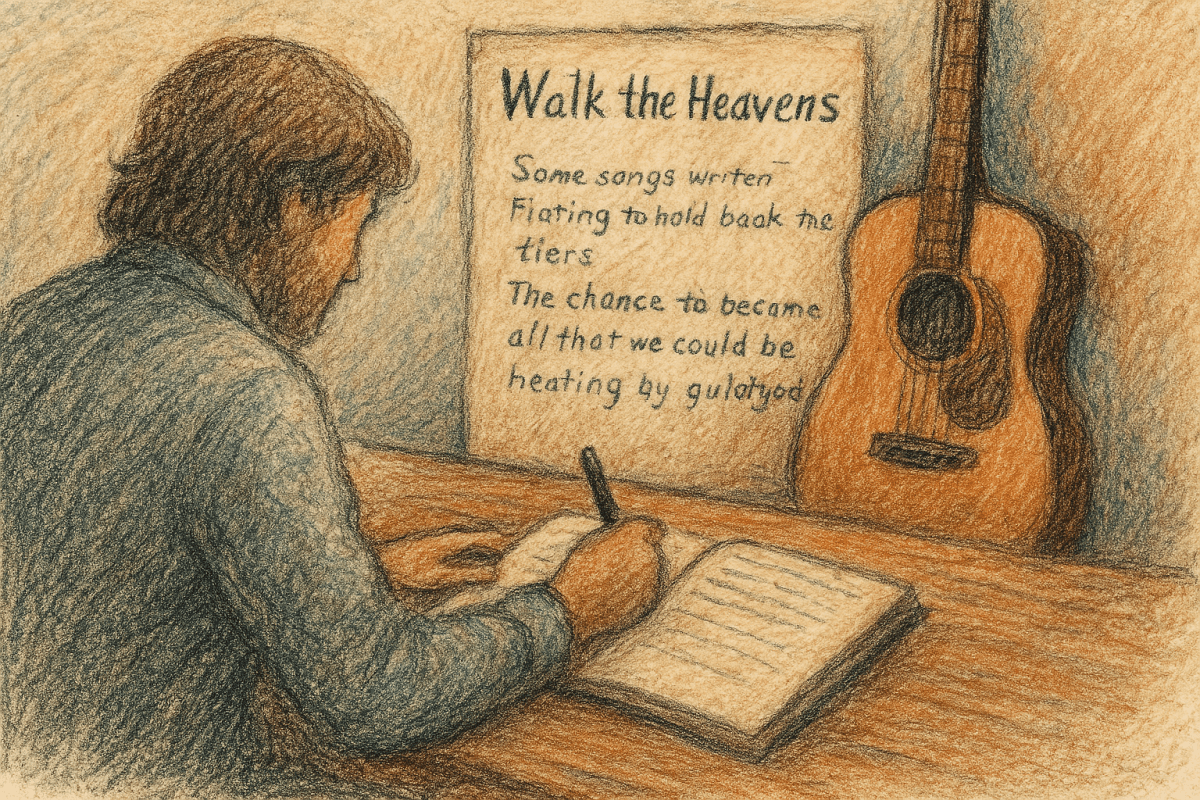 Walk the Heavens
Some songs writen
Flating to hold baak the
tiers
The chance to became
all that we could be
heating by gulatyod